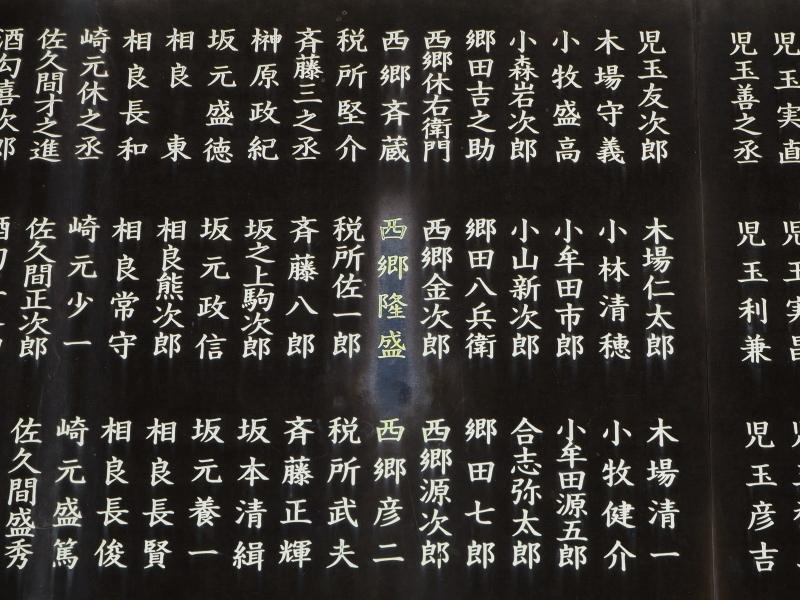 児玉実直
児玉善之丞
児玉友次郎
木場守義
小牧盛高
小森岩次郎
郷田吉之助
西郷休右衛門
西郷斉蔵
税所堅介
斉藤三之丞
榊原政紀
坂元盛徳
相良東
相良長和
崎元休之丞
佐久間才之進
酒匂喜次郎
児玉実昌
児玉利兼
木場仁太郎
小林清穂
小牟田市郎
小山新次郎
郷田八兵衛
西郷金次郎
西郷隆盛
税所佐一郎
斉藤八郎
坂之上駒次郎
坂元政信
相良熊次郎
相良常守
崎元少一
佐久間正次郎
児玉彦吉
木場清一
小牧健介
小牟田源五郎
合志弥太郎
郷田七郎
西郷源次郎
西郷彦二
税所武夫
斉藤正輝
坂本清緝
坂元養一
相良長賢
相良長俊
崎元盛篤
佐久間盛秀